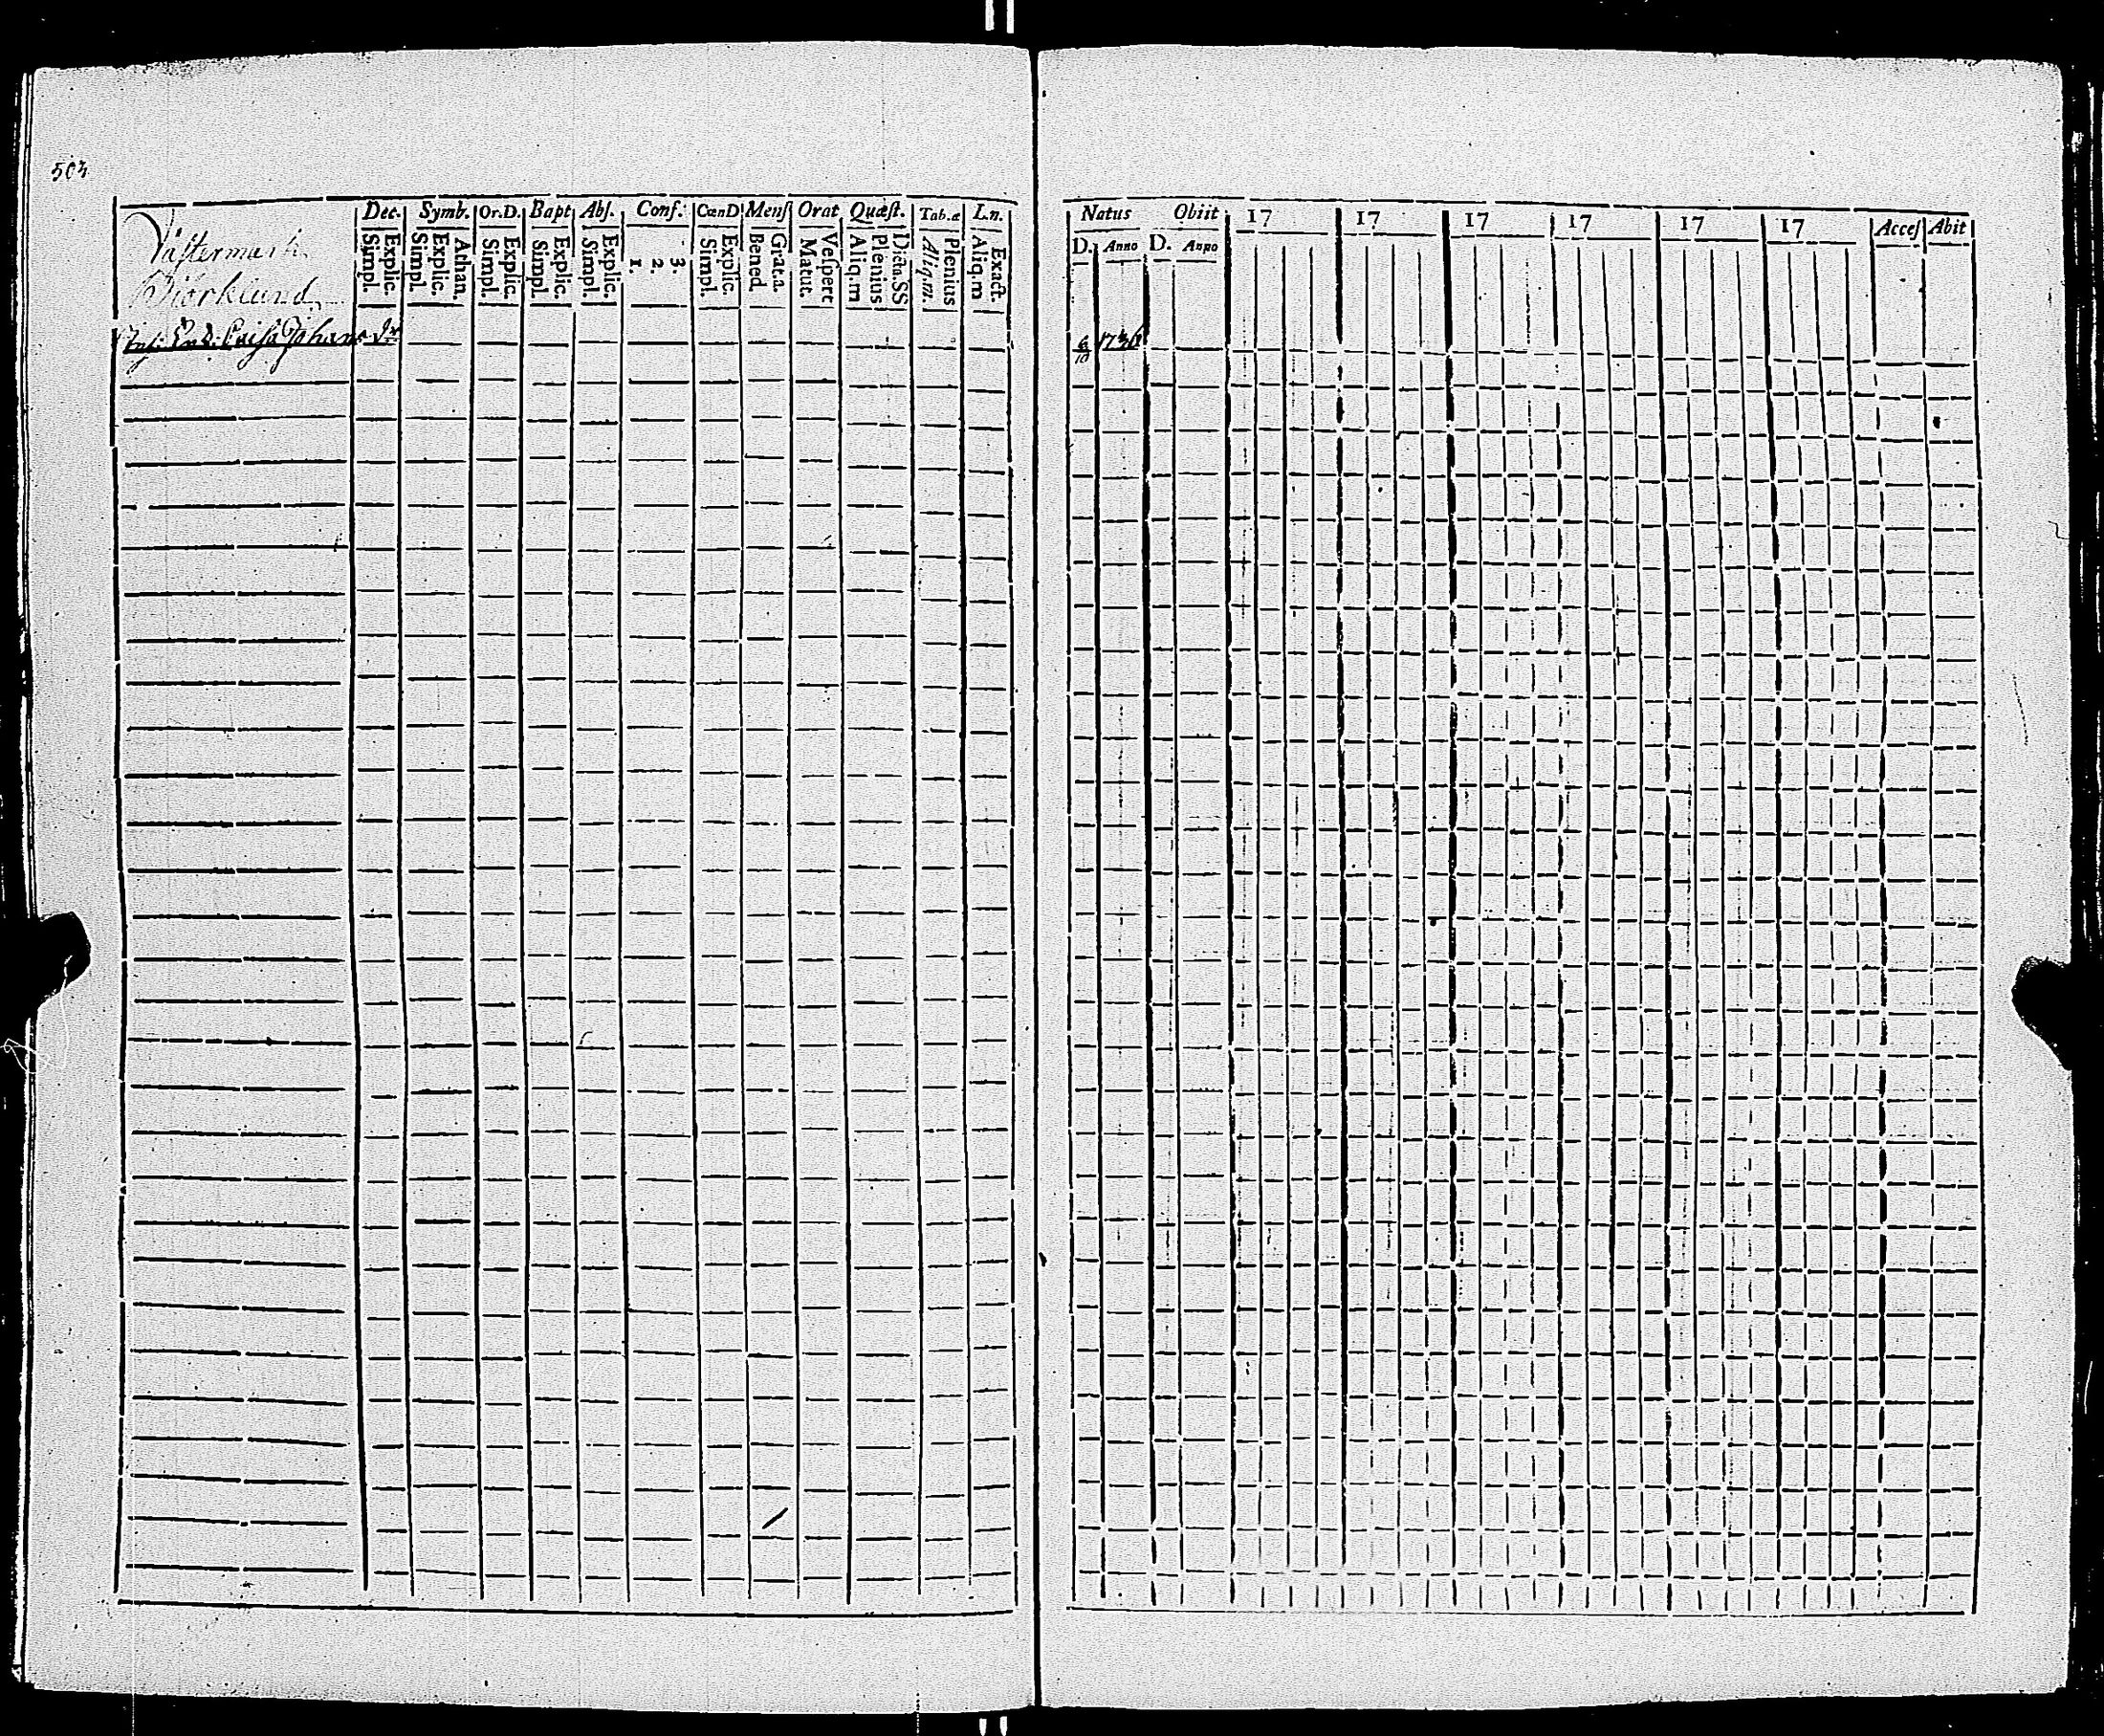 503
Dec. Symb. Or.D. Bapt Abſ. Conf. CœnD Menſ Orat Quæſt. Tab.æ L.n.
Simpl. Explic. Simpl. Explic. Athan. Simpl. Explic. Simpl. Explic. Simpl. Explic. 1. 2. 3. Simpl. Explic. Bened. Grat.a. Matut. Veſpert Aliq.m Plenius Dicta.SS Aliq.m. Plenius Aliq.m Exact.
Väſtermark
Biörklund
Johans dr
Natus Obiit 17 17 17 17 17 17 Acceſ Abit
D. Anno D. Anno
6/10